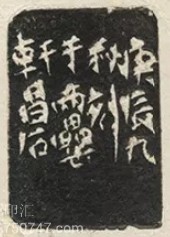 庚辰九
秋刻
于兩罍
軒昌石
50747.com